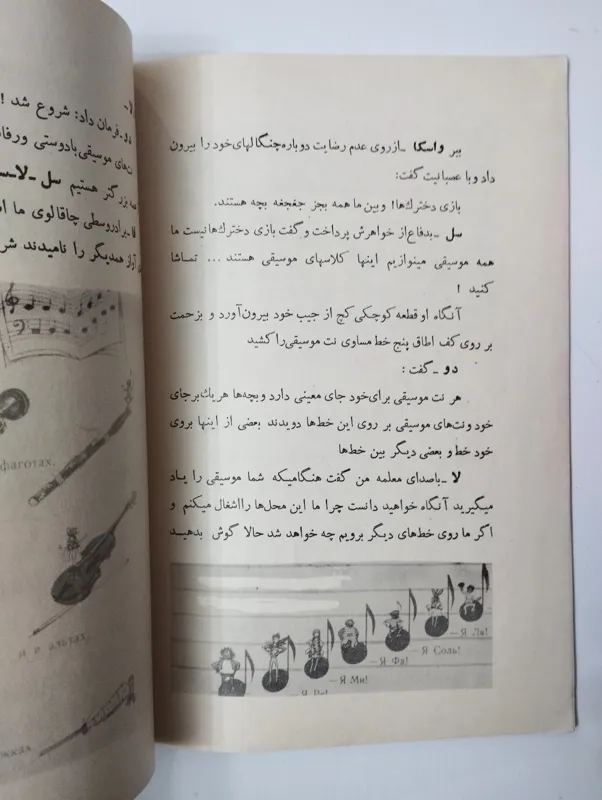 ببر واسکا ـ ازروی عدم رضایت دوباره چنگالهای خود را بیرون
داد و با عصبانیت گفت:
بازی دخترك‌ها! و بین ما همه بجز جغجغه بچه هستند.
سل ـ بدفاع از خواهرش پرداخت و گفت بازی دخترك‌ها نیست ما
همه موسیقی مینوازیم اینها کلاسهای موسیقی هستند ... تمـاشا
کنید !
آنگاه او قطعه کوچکی گچ از جیب خود بیرون آورد و بزحمت
بر روی کف اطاق پنج خط مساوی نت موسیقی را کشید
دو ـ گفت :
هر نت موسیقی برای خود جای معینی دارد و بچه‌ها هریك برجای
خود و نت‌های موسیقی بر روی این خط‌ها دویدند بعضی از اینها بروی
خود خط و بعضی دیگر بین خط‌ها
لا ـ باصدای معلمه من گفت هنگامیکه شما موسیقی را یـاد
میگیرید آنگاه خواهید دانست چرا ما این محل‌ها را اشغال میکنم و
اگر ما روی خط‌های دیگر برویم چه خواهد شد حالا گوش بدهیـد
—Я Ля!
—Я Соль!
—Я Фа!
—Я Ми!
—Я Ре!
لا ـ
دو ـ فرمان داد: شروع شد !
نت‌های موسیقی بادوستی ورفا
بزرگتر هستیم سل ـ لا ـ
فا ـ برادروسطی چاقالوی ما
آواز همدیگر را نامیدند
фаготах.
и в альтах